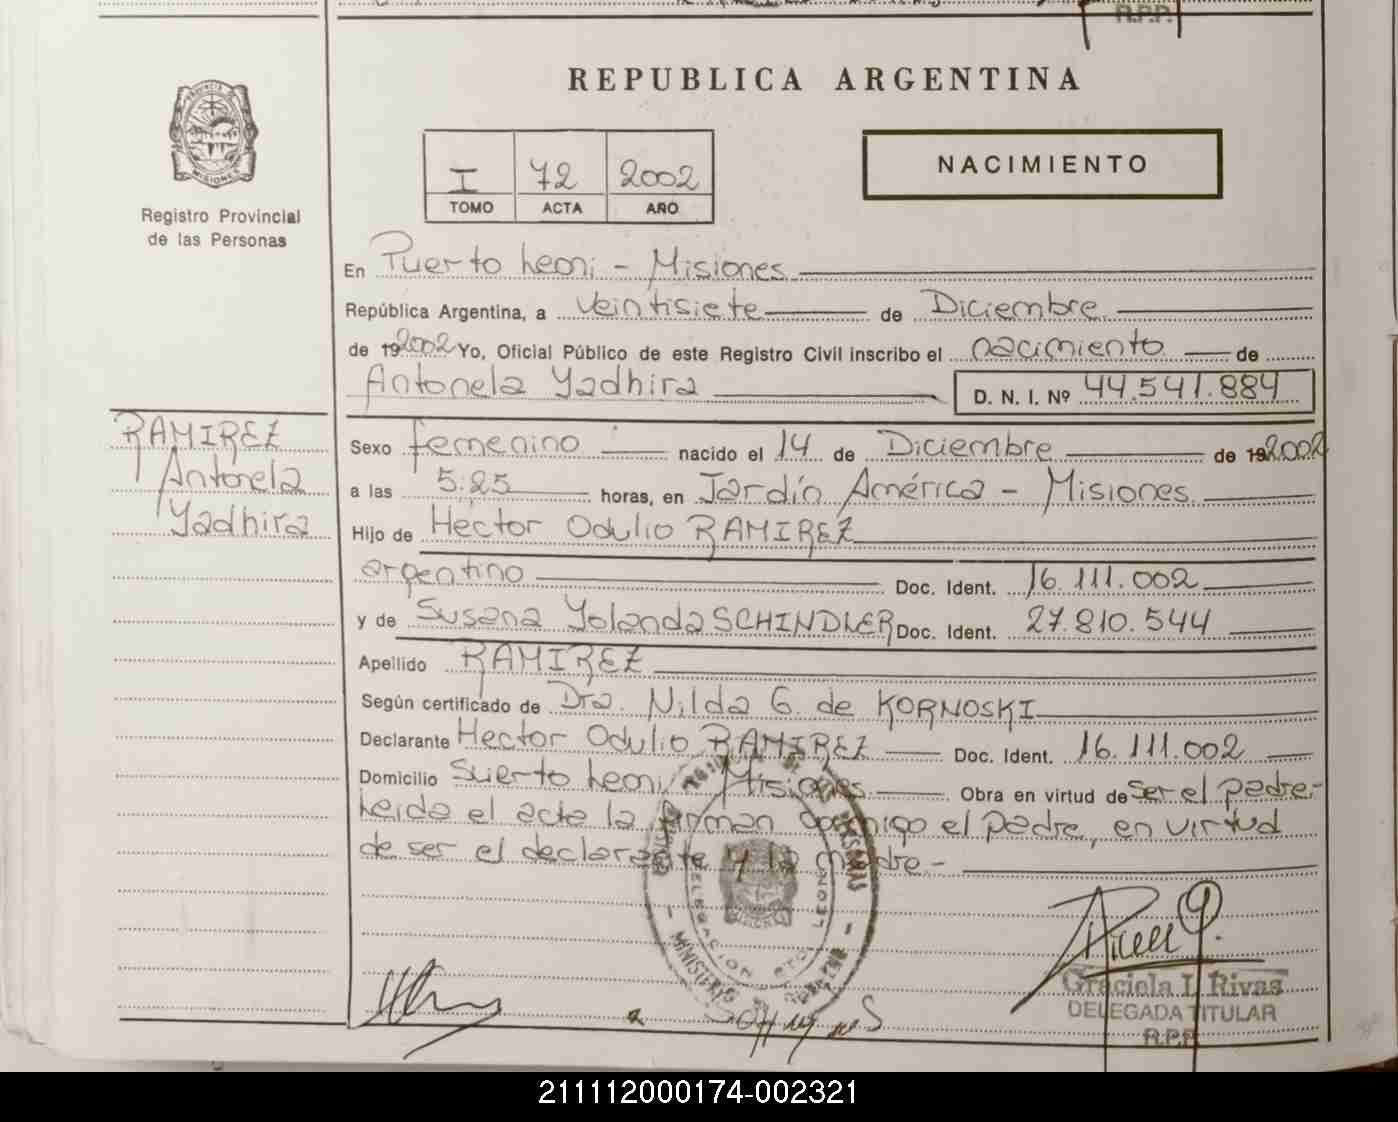 R.P.P.
REPUBLICA ARGENTINA
I 72 2002
TOMO ACTA AÑO
NACIMIENTO
PROVINCIA DE
MISIONES
Registro Provincial
de las Personas
En Puerto Leoni - Misiones
República Argentina, a veintisiete de Diciembre
de 192002 Yo, Oficial Público de este Registro Civil inscribo el nacimiento de
Antonela Yadhira D. N. I. Nº 44.541.884
RAMIREZ
Antonela
Yadhira
Sexo femenino nacido el 14 de Diciembre de 192002
a las 5:25 horas, en Jardín América - Misiones
Hijo de Héctor Odulio RAMIREZ
argentino Doc. Ident. 16.111.002
y de Susana Yolanda SCHINDLER Doc. Ident. 27.810.544
Apellido RAMIREZ
Según certificado de Dra. Nilda G. de KORNOSKI
Declarante Hector Odulio RAMIREZ Doc. Ident. 16.111.002
Domicilio Puerto Leoni Misiones Obra en virtud de ser el padre.-
Leida el acta la firman conmigo el padre, en virtud
de ser el declarante y la madre.-
DELEGACION PTO. LEONI
MINISTERIO DE GOBIERNO
Graciela I. Rivas
DELEGADA TITULAR
R.P.P.
211112000174-002321